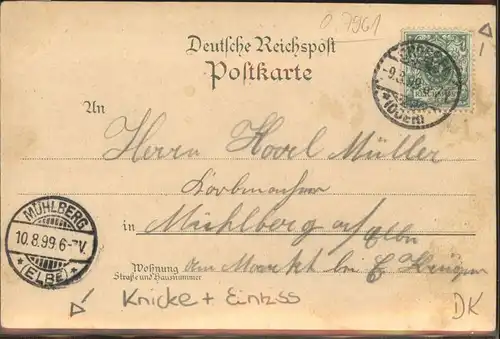 0.7961
Deutsche Reichspost
Postkarte
An
Herrn Karl Müller
Korbmacher
in Mühlberg a/Elbe
Wohnung am Markt bei
Straße und Hausnummer
MÜHLBERG
10.8.99.6-7V.
* (ELBE) *
*(ODER)
Knicke + Einriss
DK